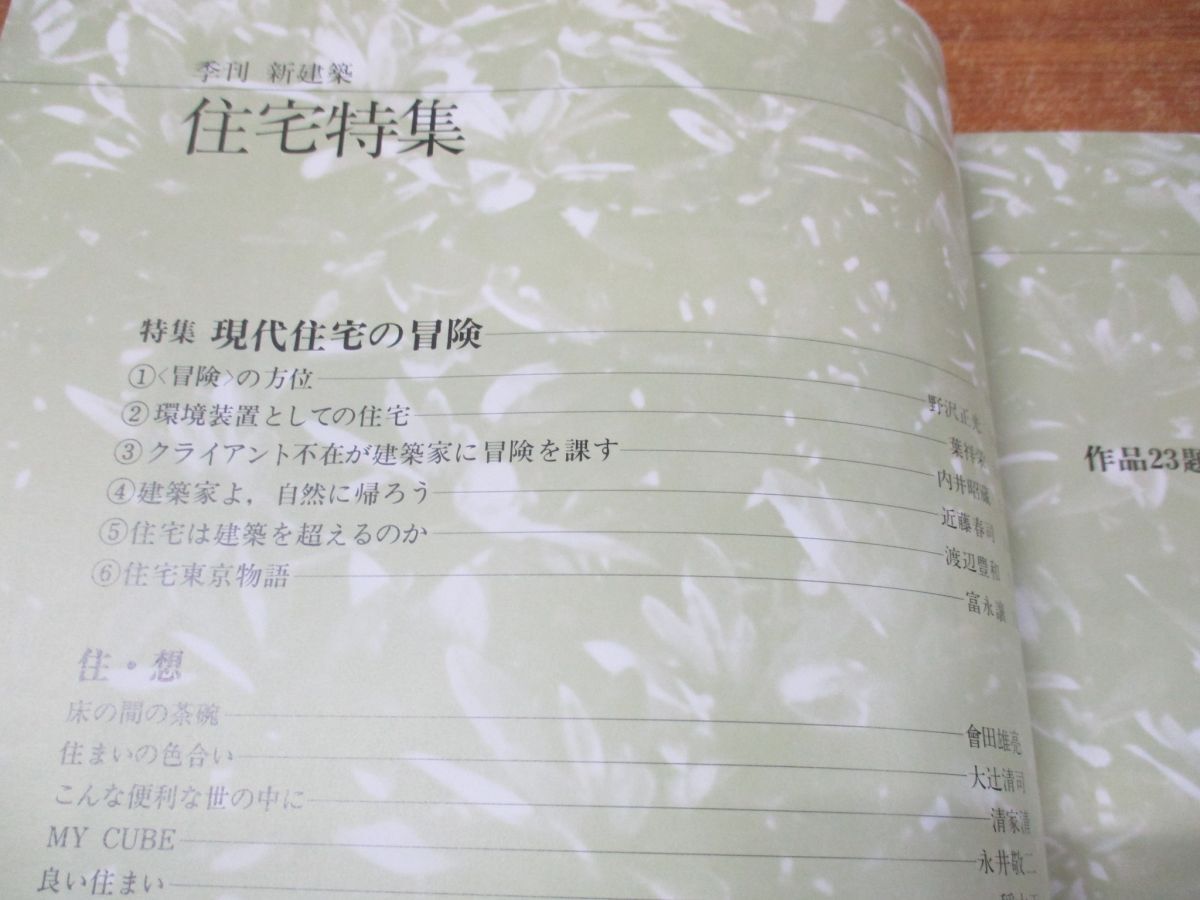 季刊 新建築
住宅特集
特集 現代住宅の冒険
①〈冒険〉の方位 野沢正光
②環境装置としての住宅 葉祥栄
③クライアント不在が建築家に冒険を課す 内井昭蔵
④建築家よ，自然に帰ろう 近藤春司
⑤住宅は建築を超えるのか 渡辺豊和
⑥住宅東京物語 富永讓
住・想
床の間の茶碗 會田雄亮
住まいの色合い 大辻清司
こんな便利な世の中に 清家清
MY CUBE 永井敬二
良い住まい
作品23題